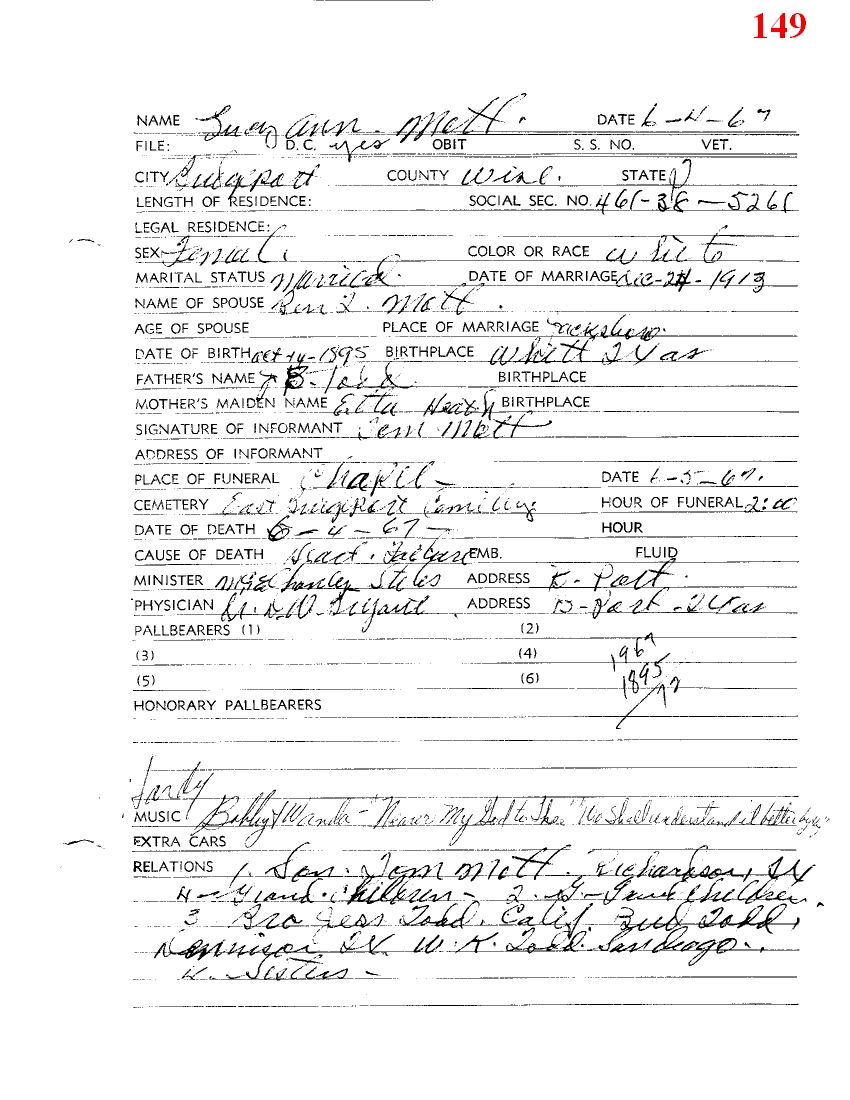 149
NAME Lucy Ann. Mott. DATE 6-4-67
FILE: D.C. yes OBIT S. S. NO. VET.
CITY Bridgeport COUNTY Wise. STATE
LENGTH OF RESIDENCE: SOCIAL SEC. NO. 461-38-5261
LEGAL RESIDENCE:
SEX Female COLOR OR RACE White
MARITAL STATUS Married. DATE OF MARRIAGE Dec-24-1913
NAME OF SPOUSE Ben I. Mott.
AGE OF SPOUSE PLACE OF MARRIAGE Jacksboro.
DATE OF BIRTH Oct 14-1895 BIRTHPLACE Whitt Texas
FATHER'S NAME B. Todd BIRTHPLACE
MOTHER'S MAIDEN NAME Etta Heath BIRTHPLACE
SIGNATURE OF INFORMANT Mott
ADDRESS OF INFORMANT
PLACE OF FUNERAL Chapel - DATE 6-5-67.
CEMETERY East Bridgeport Cemetery HOUR OF FUNERAL 2:00
DATE OF DEATH 6-4-67- HOUR
CAUSE OF DEATH Heart. Failure EMB. FLUID
MINISTER Charley Stiles ADDRESS B-Port.
PHYSICIAN Dr. D W. Bryant. ADDRESS B-Port-Texas
PALLBEARERS (1) (2)
(3) (4) 1967
(5) (6) 1895
72
HONORARY PALLBEARERS
MUSIC Bobby & Wanda - "Nearer My God to Thee" "We Shall understand it better by & by"
EXTRA CARS
RELATIONS 1. Son. Tom Mott. Richardson, TX
4-Grand-Children- 2. G-Grand Children.
3 Bro Jess Todd. Calif. Bud Todd,
Dennison TX. W. K. Todd. San Diego.
4. Sisters-